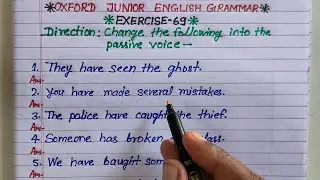 *OXFORD JUNIOR ENGLISH GRAMMAR*
*EXERCISE-69*
Direction: Change the following into the
passive voice—
1. They have seen the ghost.
Ans-
2. You have made several mistakes.
Ans-
3. The police have caught the thief.
Ans-
4. Someone has broken
Ans-
5. We have baught